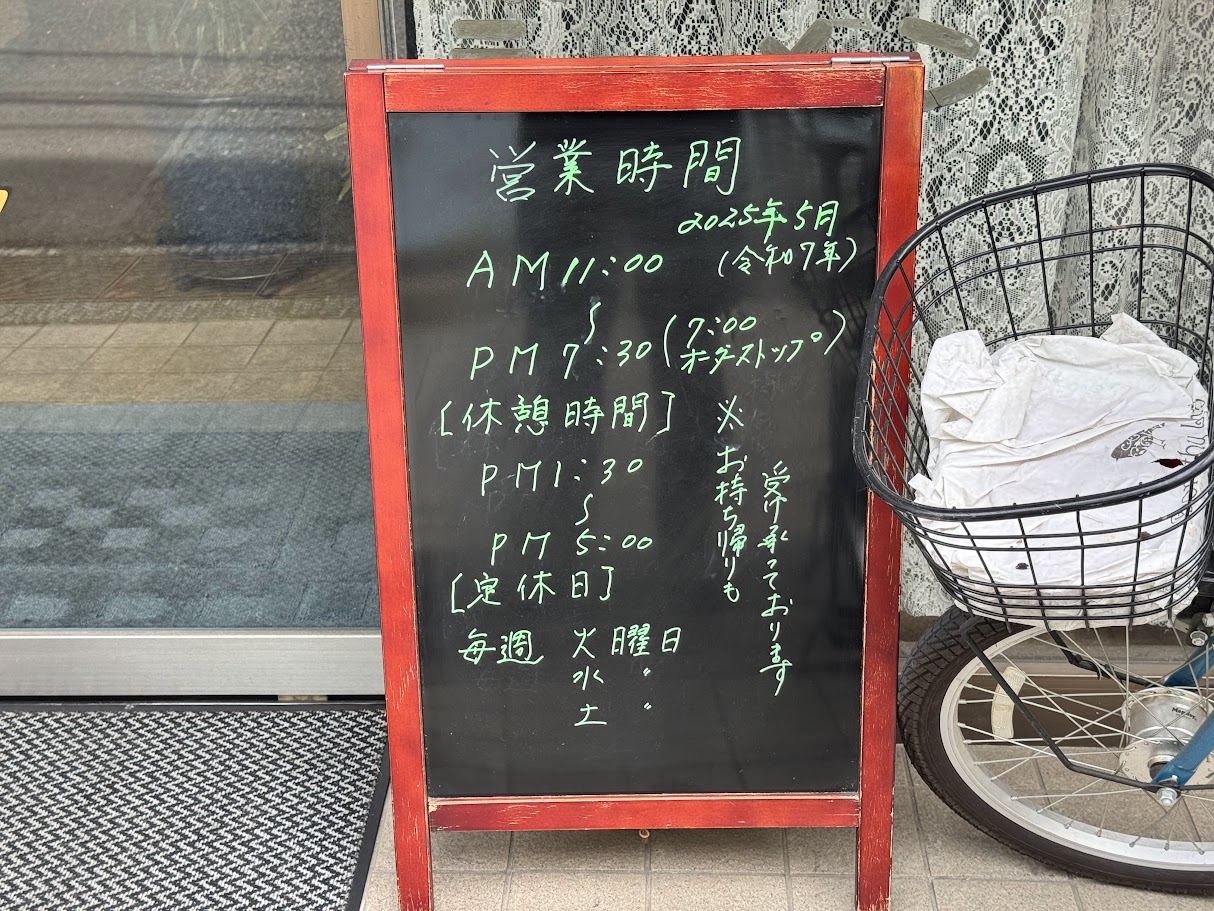 営業時間
2025年5月
(令和7年)
AM 11:00
〜
PM 7:30 (7:00 オーダーストップ)
[休憩時間]
PM 1:30
〜
PM 5:00
[定休日]
毎週 火曜日
水 〃
土 〃
※お持ち帰りも
受け承っております